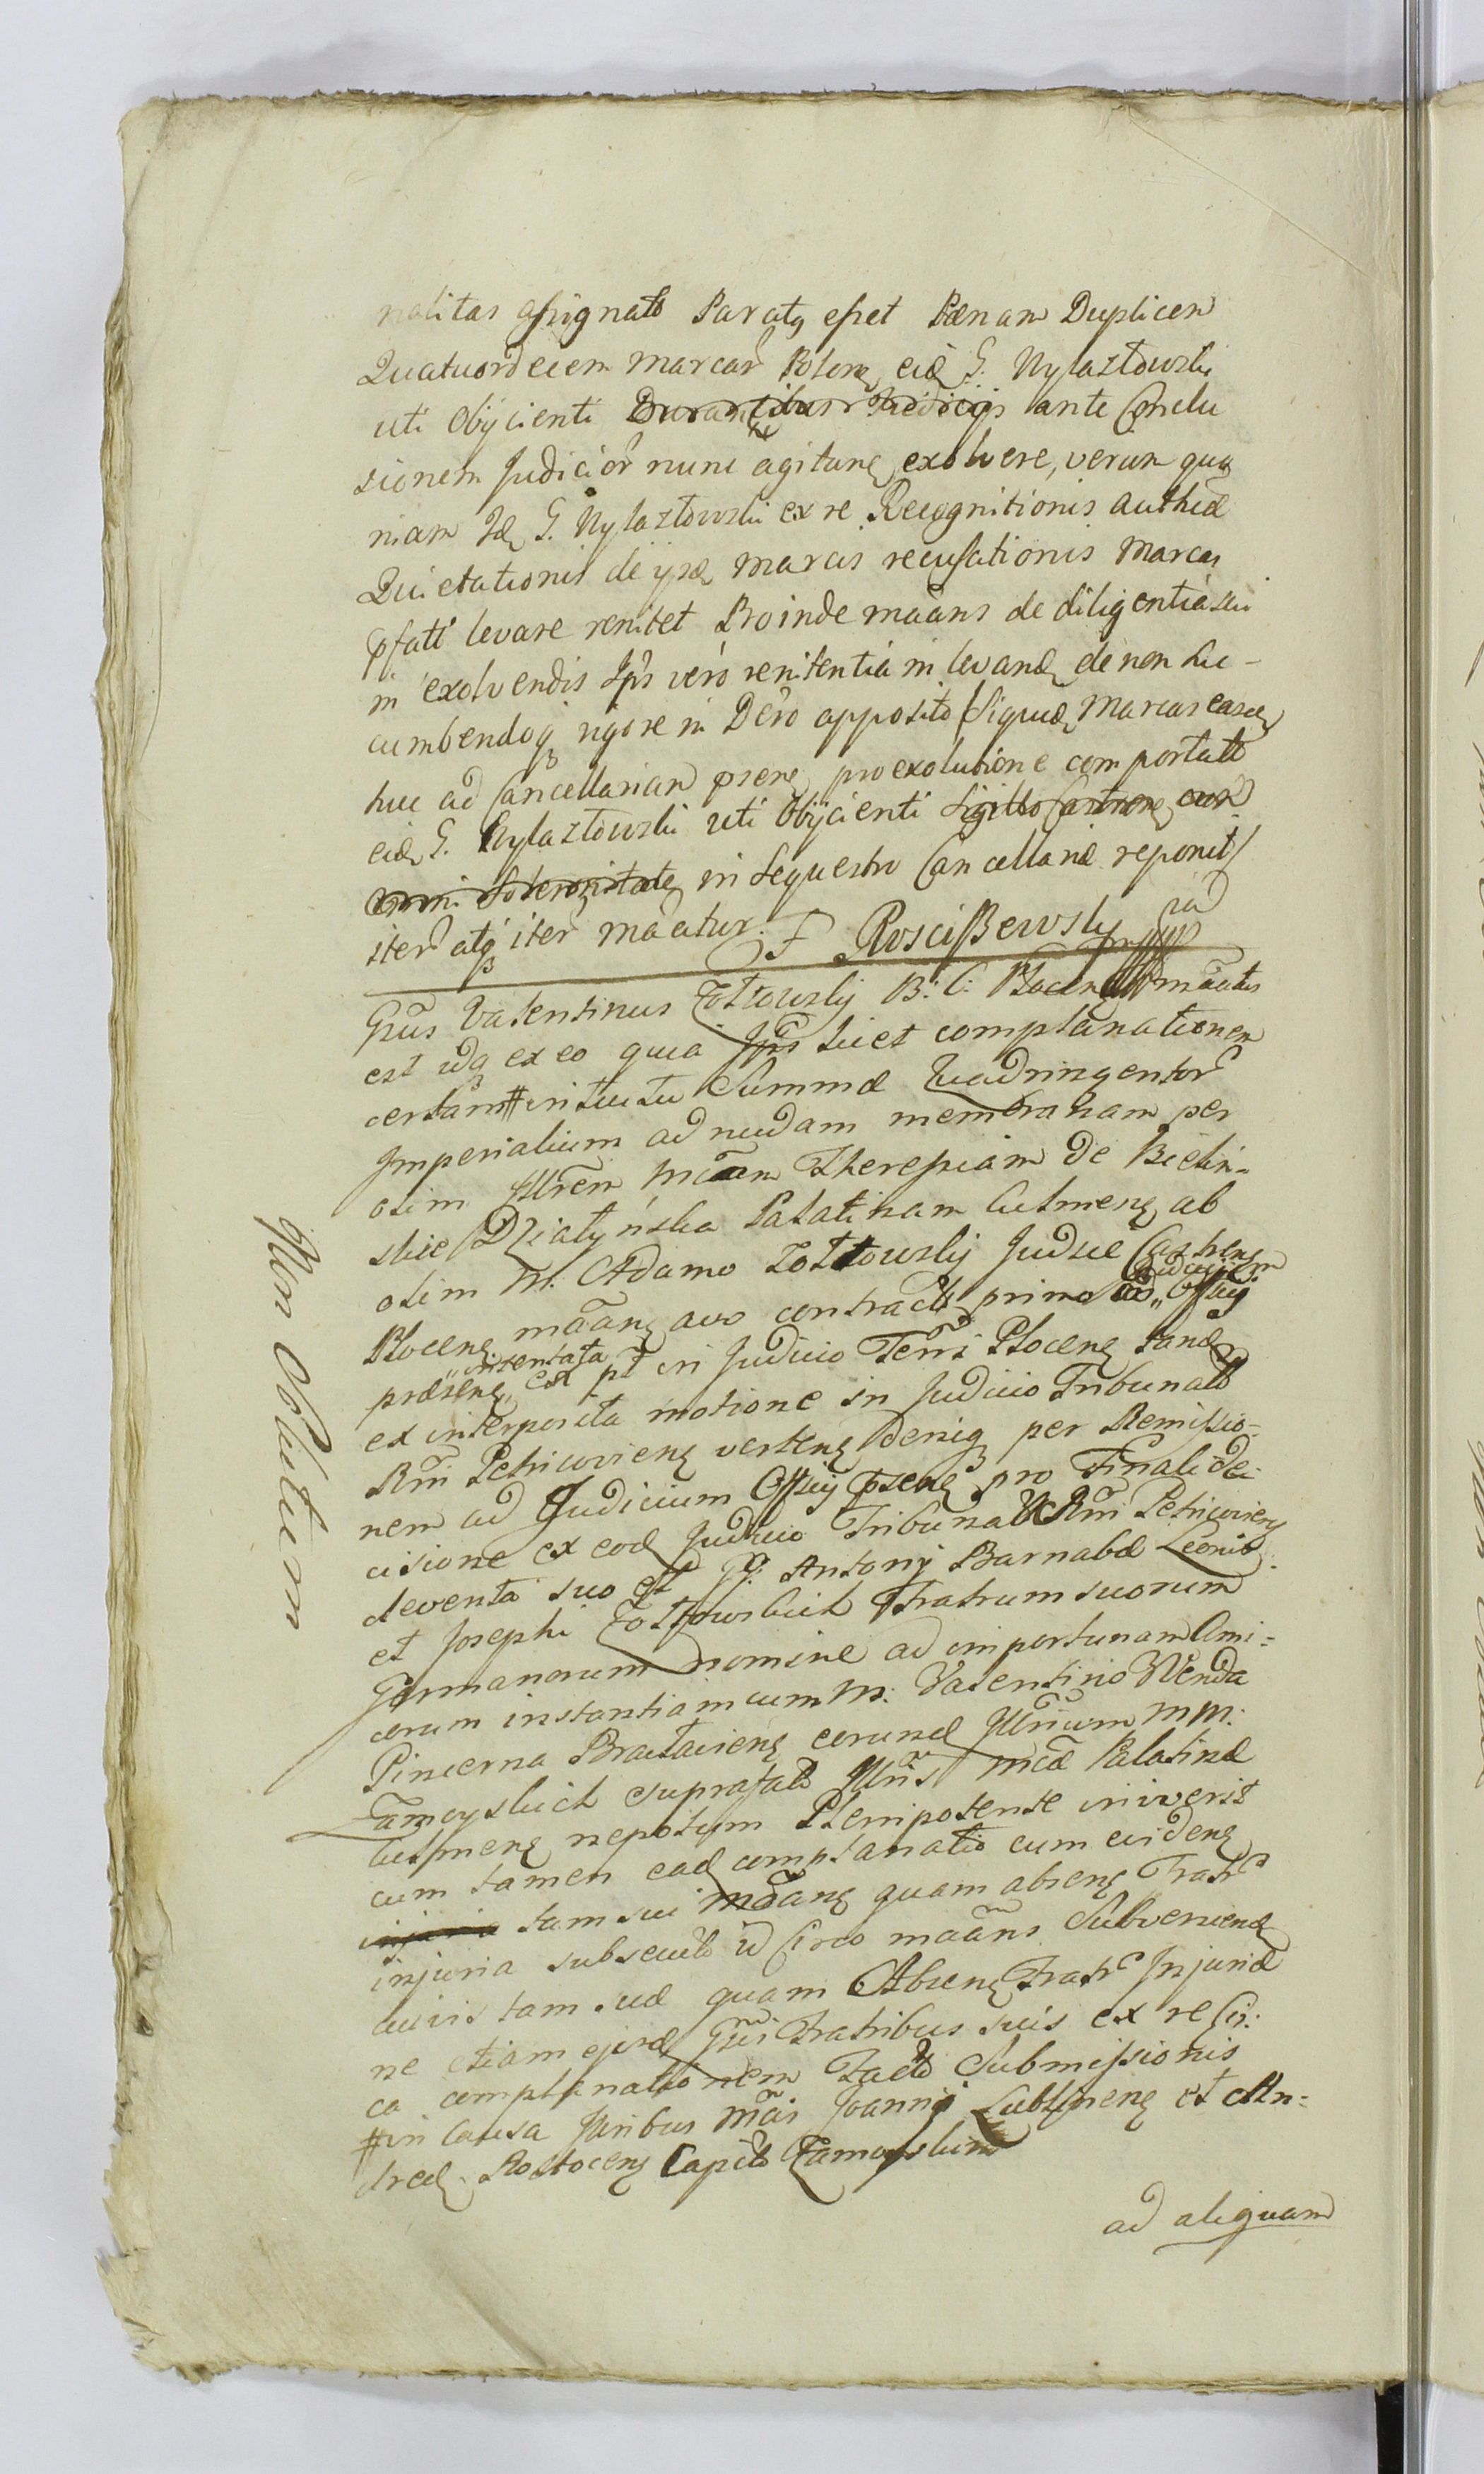 nalitas assignato Paratq esset Pænam Duplicem
Quatuordecem marcar Polon eid G. Nylaztowski
uti Objicienti Durantibus Judicijs ante Conclu
sionem Judicior nunc agitanq exolvere, verum quo
niam Id G. Nylaztowski ex re Recognitionis authæ
Quietationis de ijsd marcis recusationis marcas
pfati levare renitet Proinde maans de diligentia sui
in exolvendis Ips vero renitentia in levand de non suc-
cumbendoq rigore in Dcro apposito Siquid marcas easd
huc ad Cancellariam psene pro exolutione comportato
eid G. Nylaztowski uti Objicienti Sigillo Castrens cum
omni Solennitate in Sequestro Cancellariæ reponit
iter atq iter maatur. F Roscißewsky
Grus Valentinus Zółtowsky B: C: Płocen maatus
est idq ex eo quia Ips licet complanationem
certam # intuitu Summæ Quadringentor
Imperialium ad nudam membranam per
olim Illrem Mcam Theressiam de Bielin-
skie Działyńska Palatinam Culmens ab
olim M. Adamo Zołtowsky Judice Castrens
Plocens maans avo contracto primo ad Judicium Offcij
præsens intentata est pt in Judicio Terri Plocens tand
ex interposita motione in Judicio Tribunalo
Rni Petricoviens vertens deniq per Remissio-
nem ad Judicium Offcij psens pro Finali de-
cisione ex eod Judicio Tribunalo Rni Petricoviens
deventa suo et GG: Antonij Barnabæ Leonis
et Josephi Zołtowskich Fratrum suorum
Germanorum nomine ad importunam Ami=
corum instantiam cum M: Valentino Wenda
Pincerna Bracłaviens eorund Illrium MM:
Zamoyskich suprafato Illris Mcæ Palatinæ
Culmens nepotum Plenipotente iniverit
cum tamen ead complanatio cum evidens
injuria tam sui maans quam absens Fratr
injuria subsecuto id Circo maans Subveniend
cuivis tam suæ quam Absens Fratr Injuriæ
ne etiam ejusd Gsis Fratribus suis ex re Cir:
ca complanationem Facto Submissionis
# in Causa Illribus Mcis Joanni Lublinens et An=
dreæ Rostocens Capito Zamoyskim
ad aliquam
Non Solutum